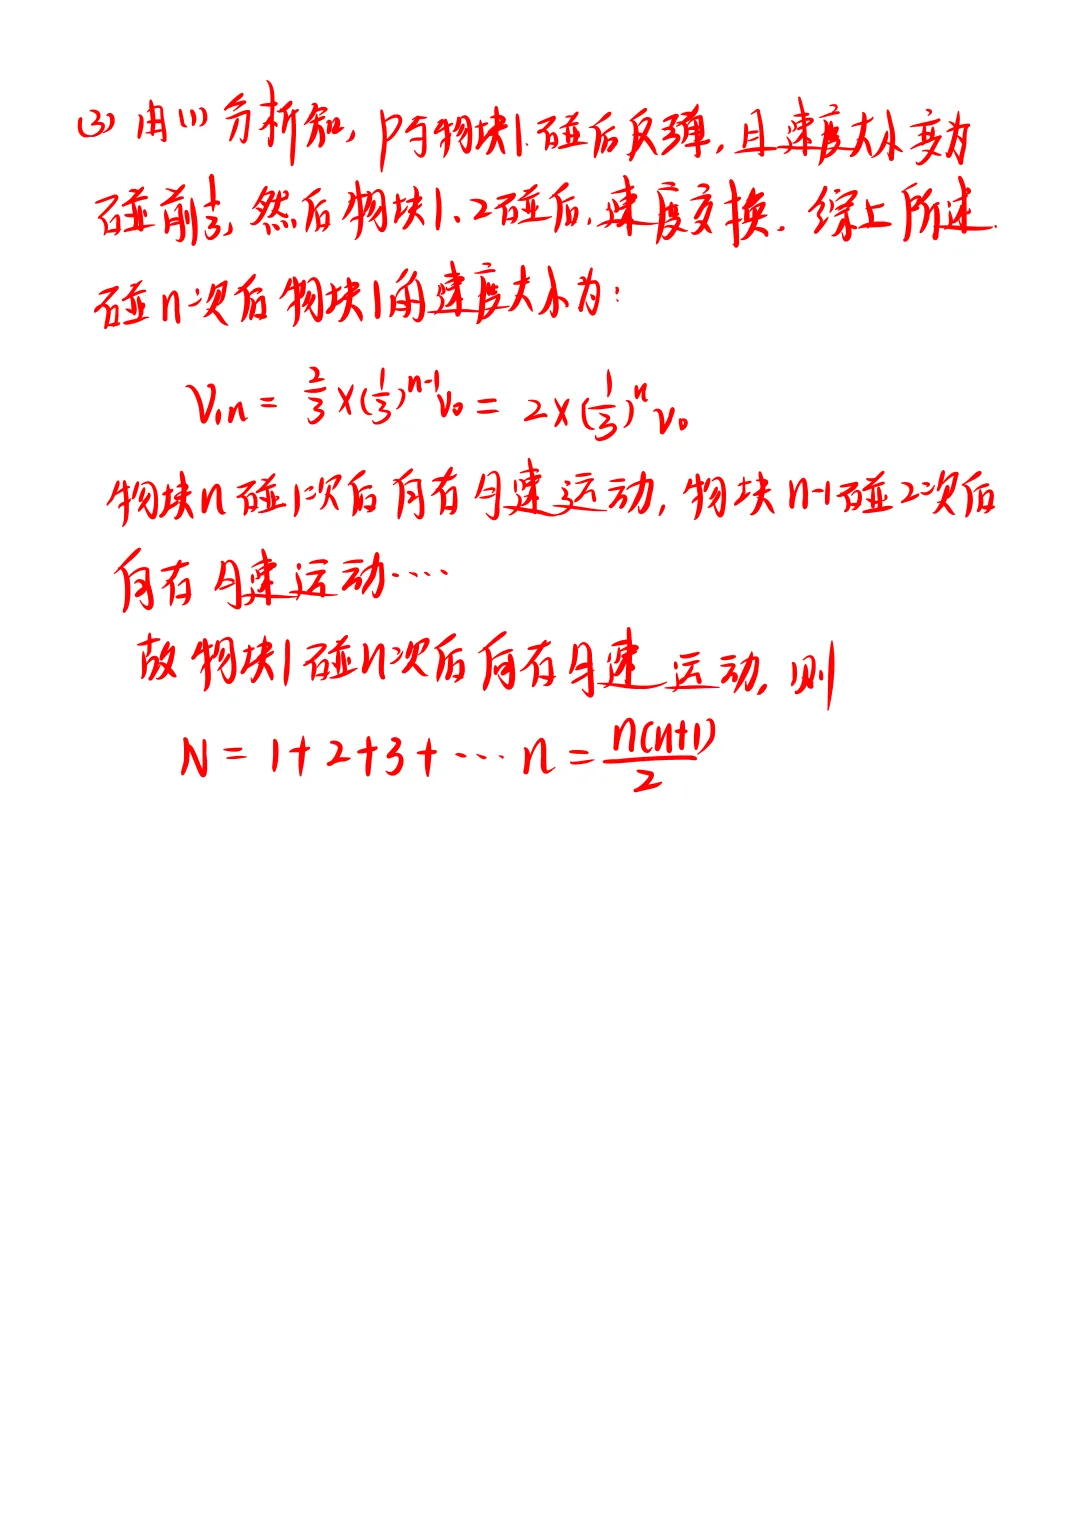 (3) 由(1)分析知, P与物块1碰后反弹, 且速度大小变为
碰前1/3, 然后物块1、2碰后, 速度交换. 综上所述.
碰n次后物块1的速度大小为:
V₁n = 2/3 × (1/3)ⁿ⁻¹ v₀ = 2 × (1/3)ⁿ v₀
物块n碰1次后向右匀速运动, 物块n-1碰2次后
向右匀速运动....
故物块1碰n次后向右匀速运动, 则
N = 1 + 2 + 3 + ... n = n(n+1)/2